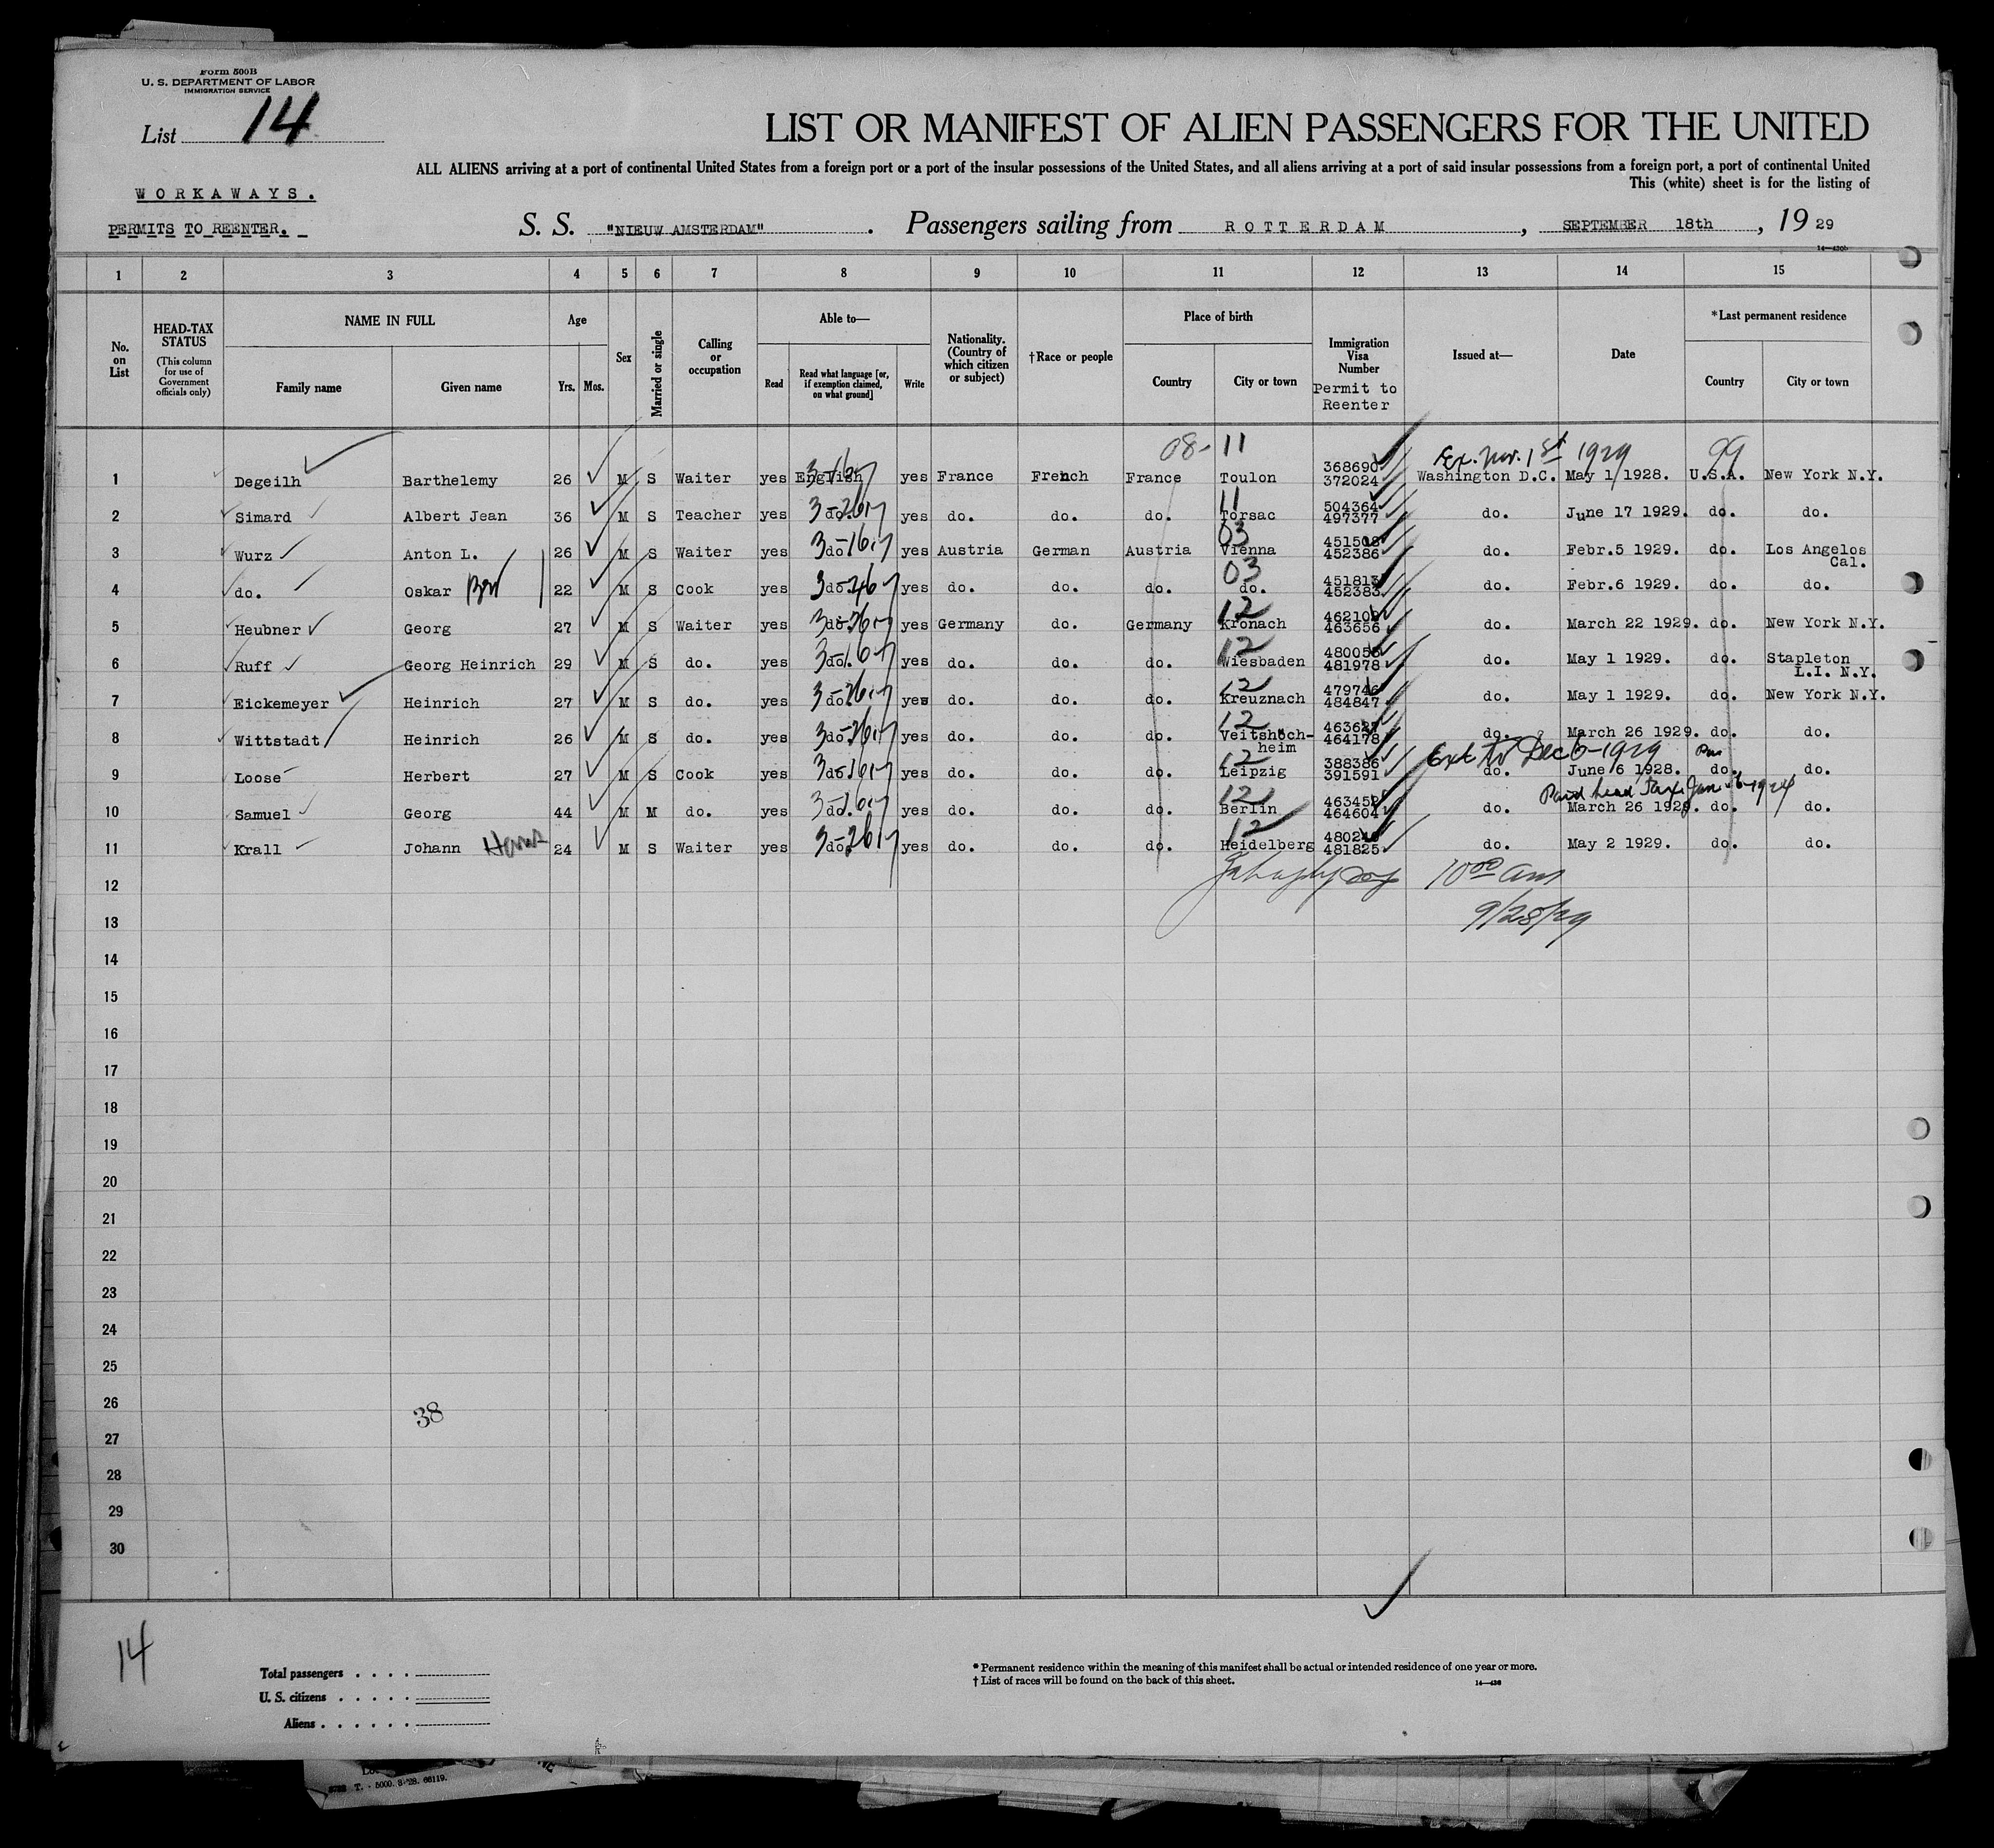 Form 500B
U. S. DEPARTMENT OF LABOR
IMMIGRATION SERVICE
List 14
LIST OR MANIFEST OF ALIEN PASSENGERS FOR THE UNITED
ALL ALIENS arriving at a port of continental United States from a foreign port or a port of the insular possessions of the United States, and all aliens arriving at a port of said insular possessions from a foreign port, a port of continental United
This (white) sheet is for the listing of
WORKAWAYS.
PERMITS TO REENTER.
S. S. "NIEUW AMSTERDAM". Passengers sailing from ROTTERDAM, SEPTEMBER 18th, 1929
1 2 3 4 5 6 7 8 9 10 11 12 13 14 15
No. on List
HEAD-TAX STATUS (This column for use of Government officials only)
NAME IN FULL Family name Given name
Age Yrs. Mos.
Sex
Married or single
Calling or occupation
Able to— Read Read what language [or, if exemption claimed, on what ground] Write
Nationality. (Country of which citizen or subject)
†Race or people
Place of birth Country City or town
Immigration Visa Number Permit to Reenter
Issued at—
Date
*Last permanent residence Country City or town
08- 11 Ex. Nov. 1st 1929 99
1 Degeilh Barthelemy 26 M S Waiter yes English yes France French France Toulon 368690 372024 Washington D.C. May 1 1928. U.S.A. New York N.Y.
11
2 Simard Albert Jean 36 M S Teacher yes do. yes do. do. do. Torsac 504364 497377 do. June 17 1929. do. do.
03
3 Wurz Anton L. 26 M S Waiter yes do yes Austria German Austria Vienna 451508 452386 do. Febr.5 1929. do. Los Angelos Cal.
03
4 do. Oskar 22 M S Cook yes do. yes do. do. do. do. 451813 452383 do. Febr.6 1929. do. do.
12
5 Heubner Georg 27 M S Waiter yes do. yes Germany do. Germany Kronach 462109 463656 do. March 22 1929. do. New York N.Y.
12
6 Ruff Georg Heinrich 29 M S do. yes do. yes do. do. do. Wiesbaden 480053 481978 do. May 1 1929. do. Stapleton L.I. N.Y.
12
7 Eickemeyer Heinrich 27 M S do. yes do. yes do. do. do. Kreuznach 479746 484847 do. May 1 1929. do. New York N.Y.
12
8 Wittstadt Heinrich 26 M S do. yes do. yes do. do. do. Veitshöchheim 463627 464178 do. March 26 1929. do. do.
12 Ext to Dec 6-1929
9 Loose Herbert 27 M S Cook yes do. yes do. do. do. Leipzig 388386 391591 do. June 6 1928. do. do.
12 Paid head Tax Jan 1924
10 Samuel Georg 44 M M do. yes do. yes do. do. do. Berlin 463452 464604 do. March 26 1929. do. do.
12
11 Krall Johann Hans 24 M S Waiter yes do. yes do. do. do. Heidelberg 481825 do. May 2 1929. do. do.
12 10 00 am
13 9/28/29
14
15
16
17
18
19
20
21
22
23
24
25
26
38
27
28
29
30
14
Total passengers
U. S. citizens
Aliens
* Permanent residence within the meaning of this manifest shall be actual or intended residence of one year or more.
† List of races will be found on the back of this sheet.
T. - 5000. 8-'28. 66119.